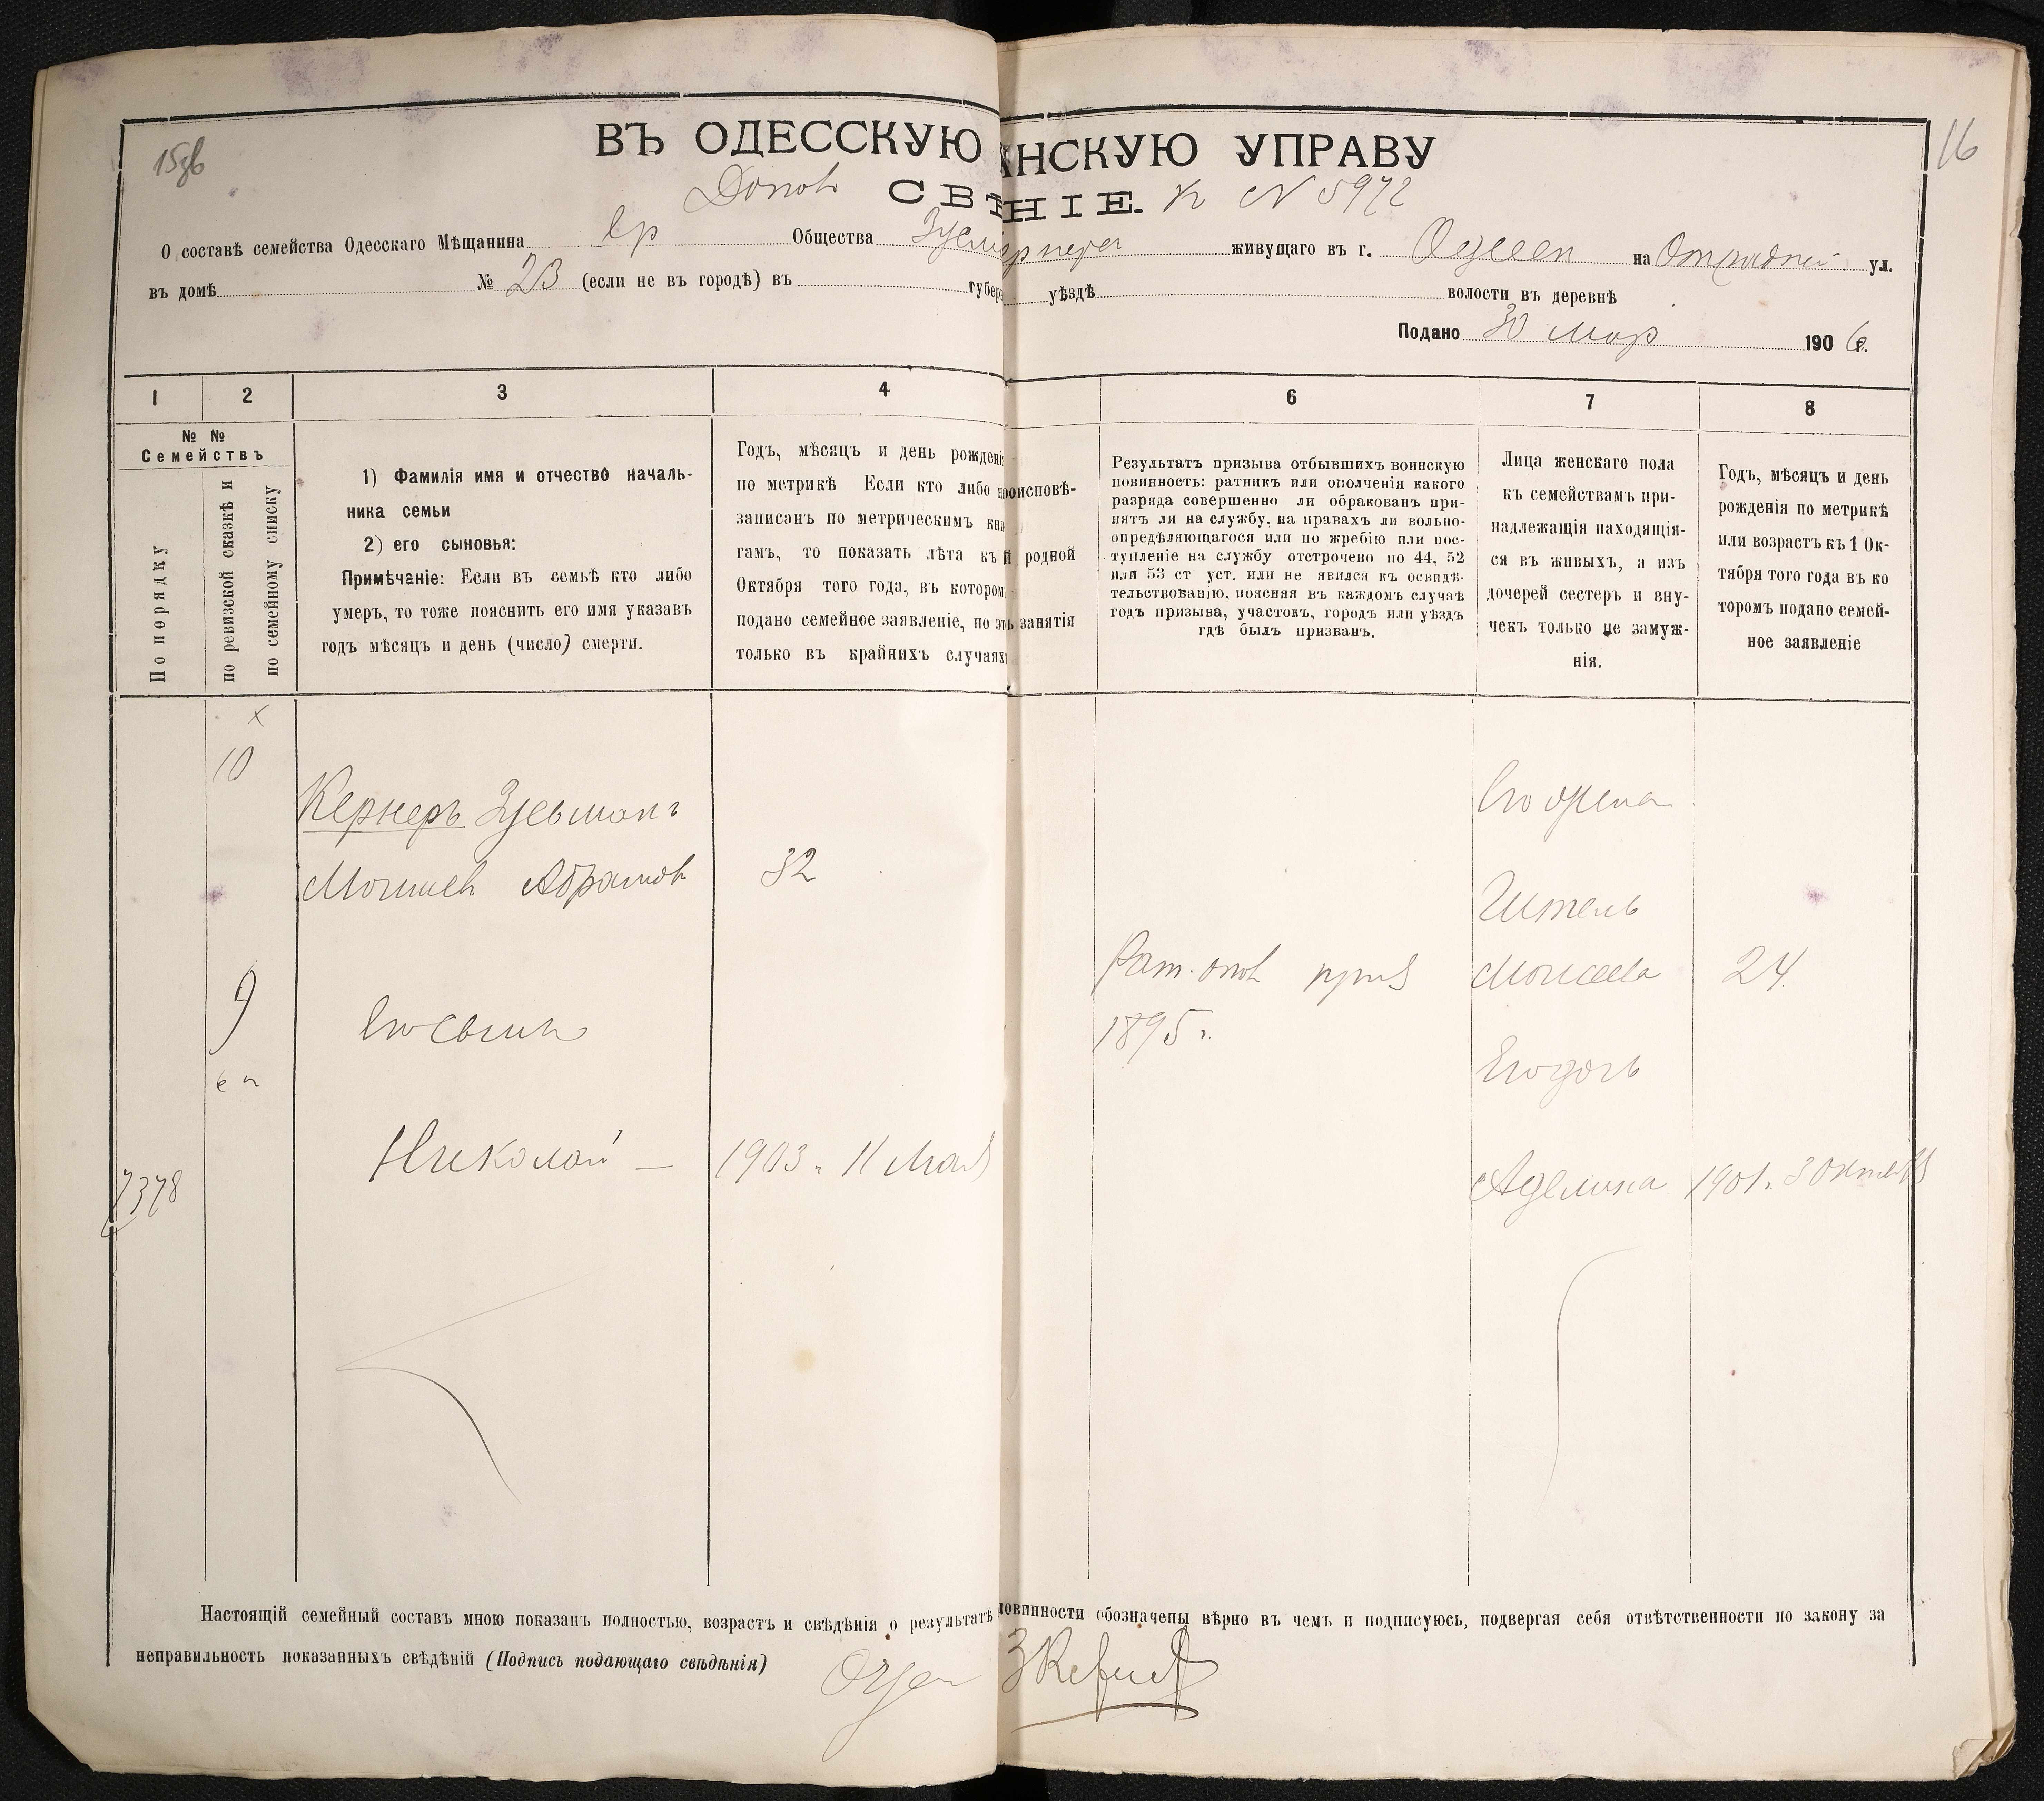 15зв
16
ВЪ ОДЕССКУЮ АНСКУЮ УПРАВУ
СВѢ НІЕ. К N 5972
О составѣ семейства Одесскаго Мѣщанина Ер Общества живущаго въ г. Одессѣ на Отрадной ул.
въ домѣ № 23 (если не въ городѣ) въ губер уѣздѣ волости въ деревнѣ
Подано 30 мар 1906 г.
1 2 3 4 6 7 8
№ №
Семействъ
По порядку
по ревизской сказкѣ и
по семейному списку
1) Фамилія имя и отчество началь-
ника семьи
2) его сыновья:
Примѣчаніе: Если въ семьѣ кто либо
умеръ, то тоже пояснить его имя указавъ
годъ мѣсяцъ и день (число) смерти.
Годъ, мѣсяцъ и день рожденія
по метрикѣ Если кто либо н
записанъ по метрическимъ кни
гамъ, то показать лѣта къ
Октября того года, въ котором
подано семейное заявленіе, но эт
только въ крайнихъ случаях
роисповѣ-
й родной
ь занятія
Результатъ призыва отбывшихъ воинскую
повинность: ратникъ или ополченія какого
разряда совершенно ли обракованъ при-
нятъ ли на службу, на правахъ ли вольно-
опредѣляющагося или по жребію или пос-
тупленіе на службу отстрочено по 44, 52
или 53 ст уст. или не явился къ освидѣ-
тельствованію, поясняя въ каждомъ случаѣ
годъ призыва, участокъ, городъ или уѣздъ
гдѣ былъ призванъ.
Лица женскаго пола
къ семействамъ при-
надлежащія находящія-
ся въ живыхъ, а изъ
дочерей сестеръ и вну-
чекъ только не замуж-
нія.
Годъ, мѣсяцъ и день
рожденія по метрикѣ
или возрастъ къ 1 Ок-
тября того года въ ко
торомъ подано семей-
ное заявленіе
х
10
Кернеръ Зусьманъ
Мошков Абрамов 32
Его жена
Моисеева 24.
Рат. опол приз
1895 г.
9
Его сынъ
Его дочь
7378
Николай — 1903 г. 11 Мая
Аделина 1901 г. 3 Октября
Настоящій семейный составъ мною показанъ полностью, возрастъ и свѣдѣнія о результатѣ повинности обозначены вѣрно въ чемъ и подписуюсь, подвергая себя отвѣтственности по закону за
неправильность показанныхъ свѣдѣній (Подпись подающаго свѣдѣнія)
З Кернер